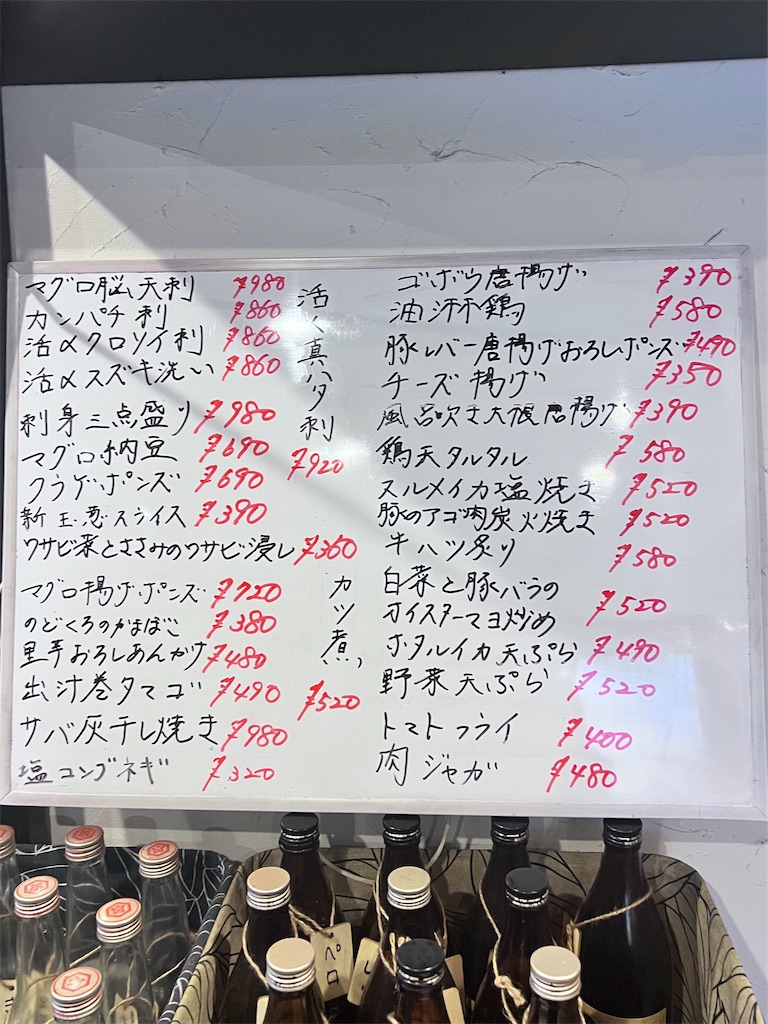 マグロ脳天刺 ¥980
カンパチ刺 ¥860
活〆クロソイ刺 ¥860
活〆スズキ洗い ¥860
刺身三点盛り ¥980
マグロ納豆 ¥690
クラゲポンズ ¥690
新玉葱スライス ¥390
ワサビ菜とささみのワサビ浸し ¥360
マグロ揚げポンズ ¥720
のどくろのかまぼこ ¥380
里芋おろしあんかけ ¥480
出汁巻タマゴ ¥490
サバ灰干し焼き ¥980
塩コンブネギ ¥320
活〆真ハタ刺
¥920
カツ煮
¥520
ゴボウ唐揚げ ¥390
油淋鶏 ¥580
豚レバー唐揚げおろしポンズ ¥490
チーズ揚げ ¥350
風呂吹き大根唐揚げ ¥390
鶏天タルタル ¥580
スルメイカ塩焼き ¥520
豚のアゴ肉炭火焼き ¥520
牛ハツ炙り ¥580
白菜と豚バラの
オイスターマヨ炒め ¥520
ホタルイカ天ぷら ¥490
野菜天ぷら ¥520
トマトフライ ¥400
肉ジャガ ¥480